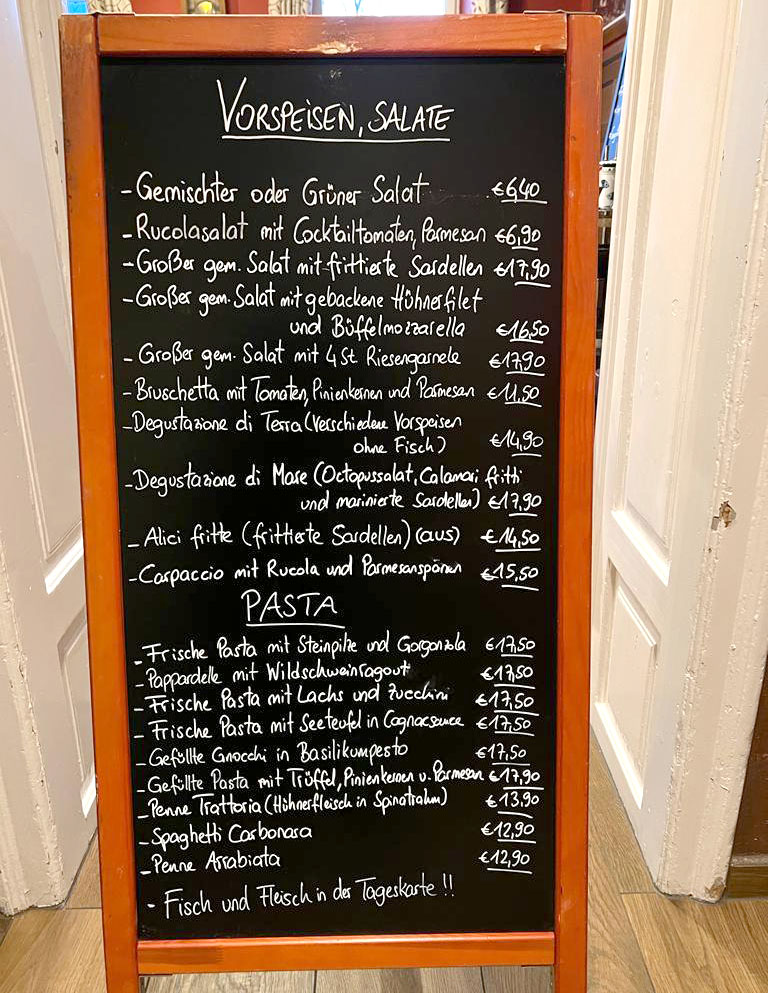 VORSPEISEN, SALATE
- Gemischter oder Grüner Salat €6,40
- Rucolasalat mit Cocktailtomaten, Parmesan €6,90
- Großer gem. Salat mit frittierte Sardellen €17,90
- Großer gem. Salat mit gebackene Hühnerfilet
und Büffelmozzarella €16,50
- Großer gem. Salat mit 4 St. Riesengarnele €17,90
- Bruschetta mit Tomaten, Pinienkernen und Parmesan €11,50
- Degustazione di Terra (Verschiedene Vorspeisen
ohne Fisch) €14,90
- Degustazione di Mare (Octopussalat, Calamari fritti
und marinierte Sardellen) €17,90
- Alici fritte (frittierte Sardellen) (aus) €14,50
- Carpaccio mit Rucola und Parmesanspänen €15,50
PASTA
- Frische Pasta mit Steinpilze und Gorgonzola €17,50
- Pappardelle mit Wildschweinragout €17,50
- Frische Pasta mit Lachs und Zucchini €17,50
- Frische Pasta mit Seeteufel in Cognacsauce €17,50
- Gefüllte Gnocchi in Basilikumpesto €17,50
- Gefüllte Pasta mit Trüffel, Pinienkernen u. Parmesan €17,90
- Penne Trattoria (Hühnerfleisch in Spinatrahm) €13,90
- Spaghetti Carbonara €12,90
- Penne Arrabiata €12,90
- Fisch und Fleisch in der Tageskarte !!